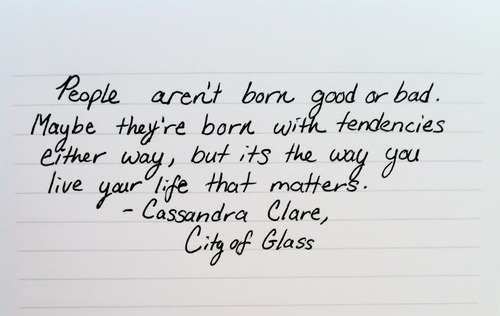 People aren't born good or bad.
Maybe they're born with tendencies
either way, but its the way you
live your life that matters.
- Cassandra Clare,
City of Glass